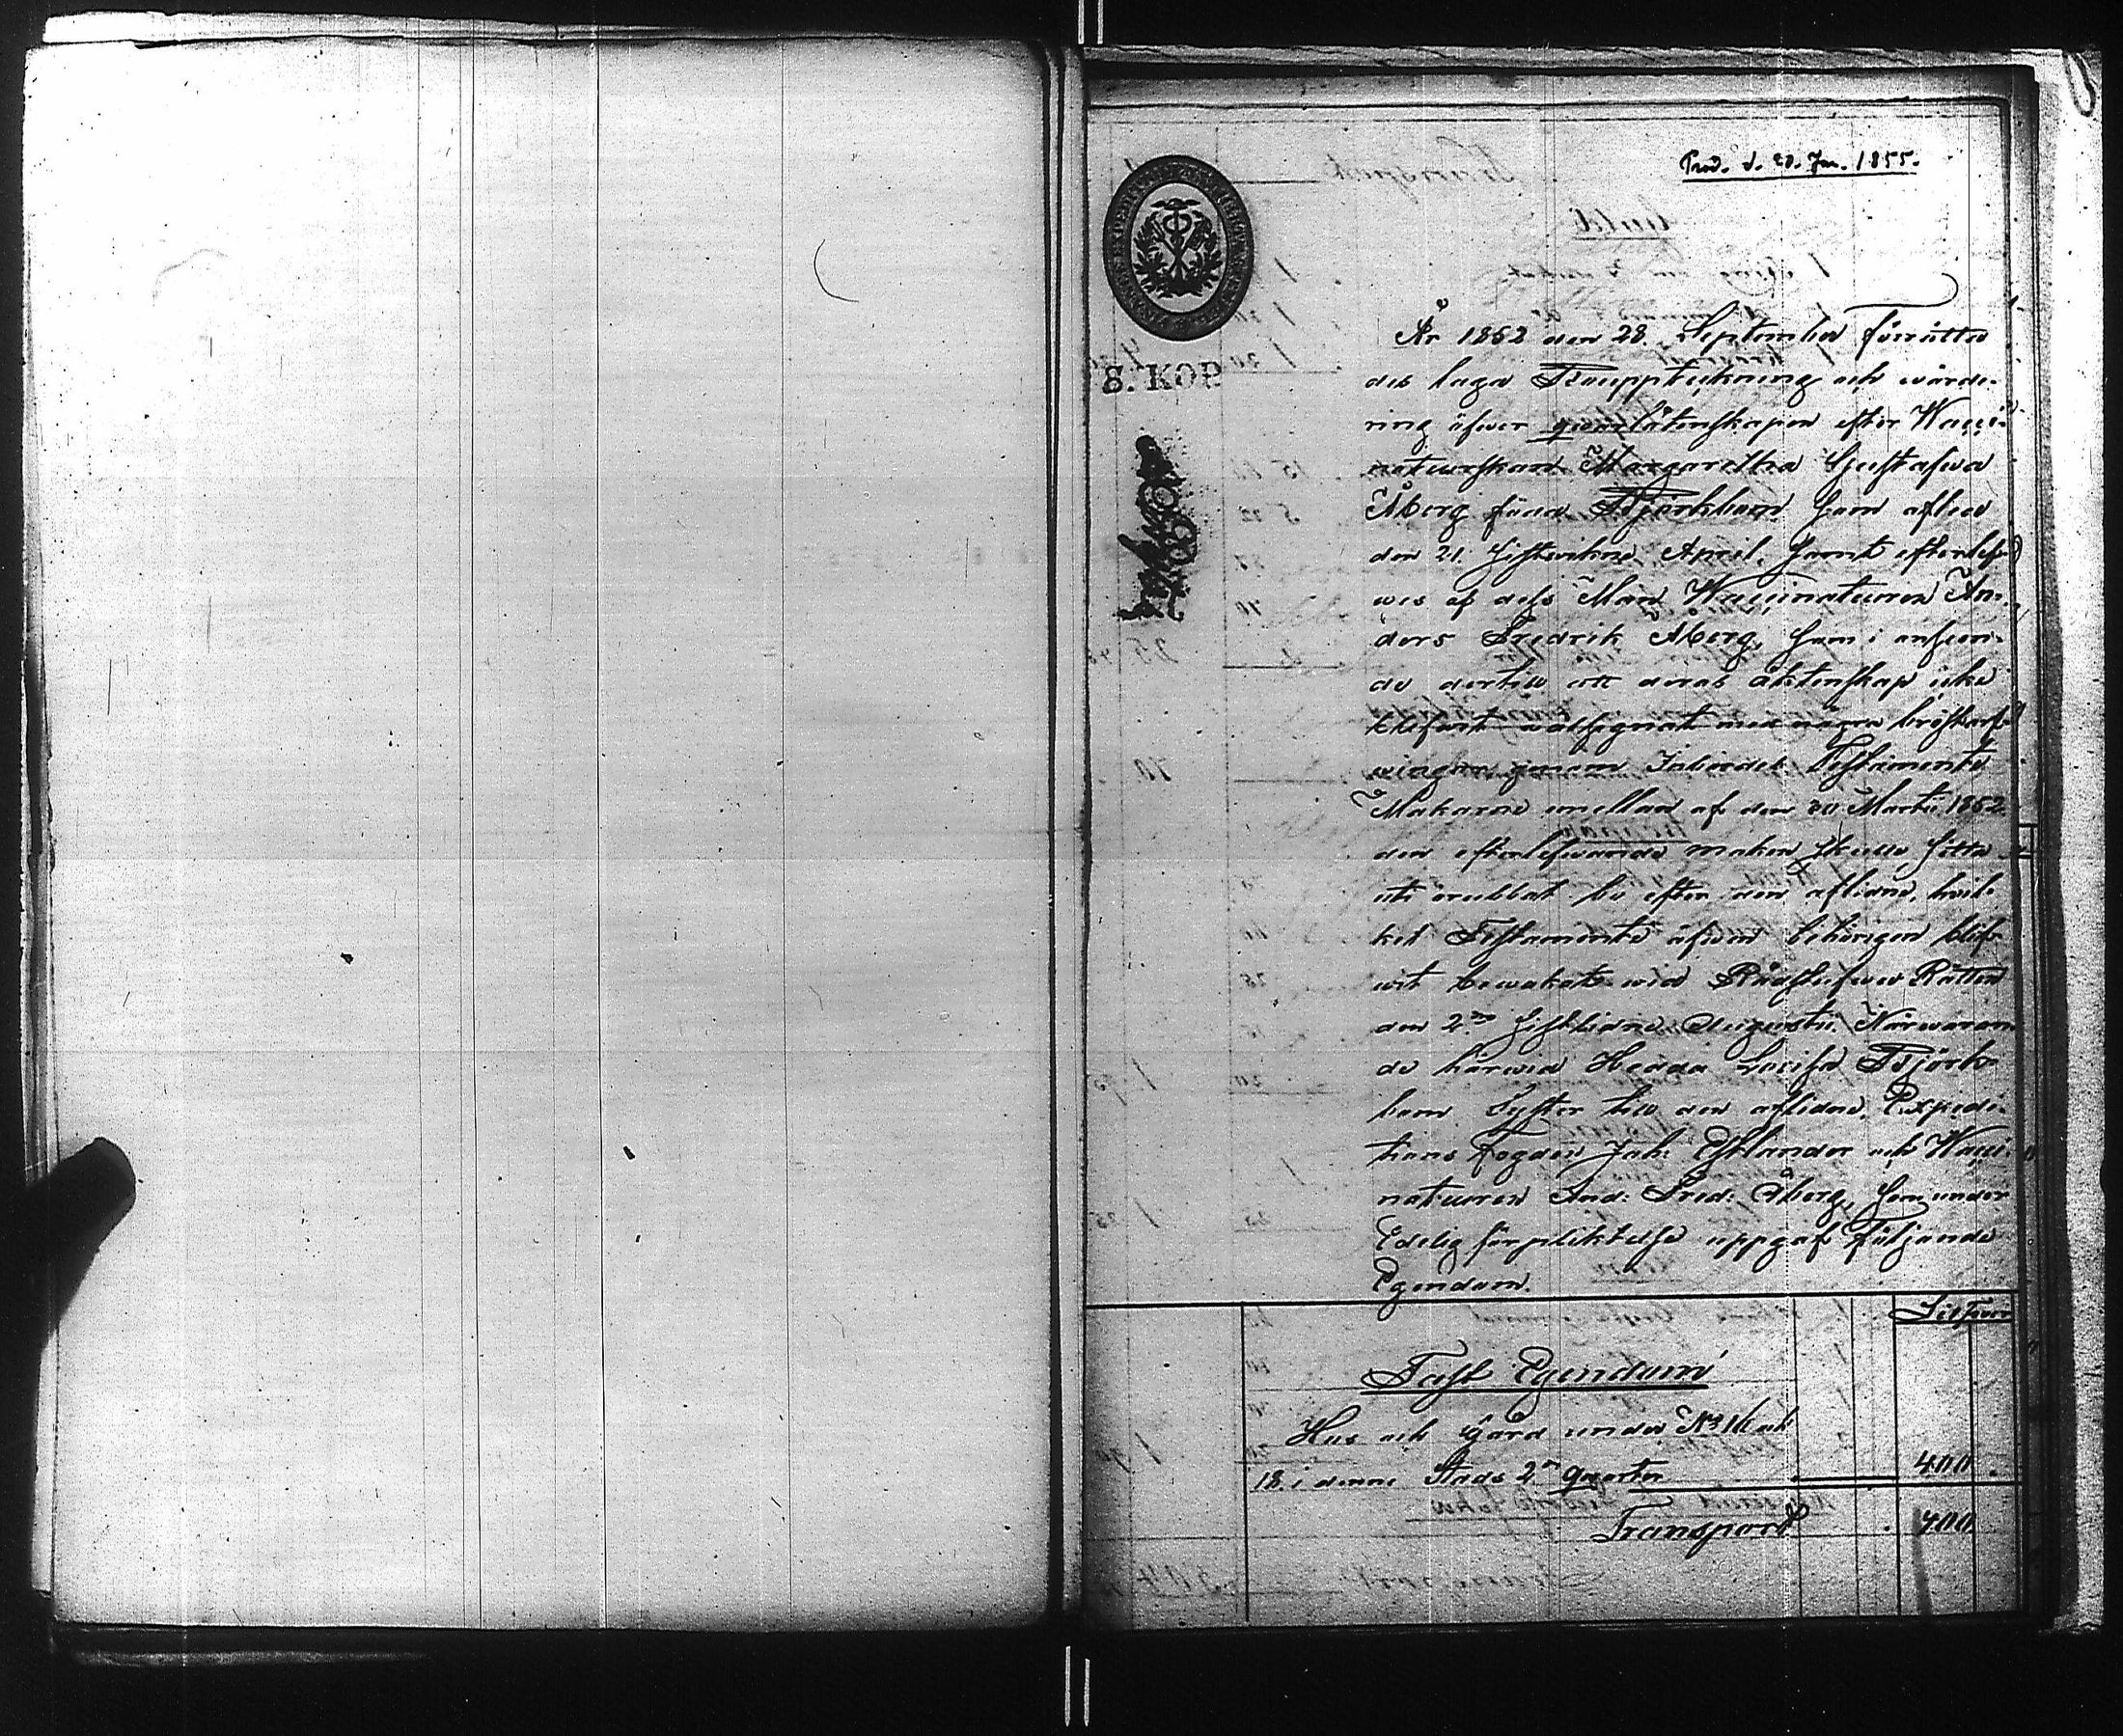 Prod. d. 20. Jan. 1855.
År 1852 den 28. September förrätta
des laga Bouppteckning och värde-
ring öfver qvarlåtenskapen efter Wacci-
nateurskan Margaretha Gustafva
Åberg född Björkbom som afled
den 21. sistvikne April, samt efterlef-
ves af dess Man Waccinateuren An-
ders Fredrik Åberg, som i anseen-
de dertill att deras äktenskap icke
blifvit välsignat med några bröstarf-
vingar genom Inbördes Testamente
Makarne emellan af den 30 Martii 1852
den efterlefvande maken skulle sitta
uti orubbat bo efter den aflidne, hvil-
ket Testamente äfven behörigen blif-
vit bevakat vid Rådstufvu Rätten
den 2dre sistlidne Augustii. Närvaran-
de härvid Hedda Lovisa Björk-
bom Syster till den aflidne, Expedi-
tions Fogden Joh: Estlander och Wacci-
nateuren And: Fred: Åberg, som under
Edelig förpliktelse uppgaf följande
Egendom.
Silfver
Fast Egendom
Hus och Gård under No 16 och
18. i denne Stads 2dra qvarter 400.
Transport . 400
8. KOP